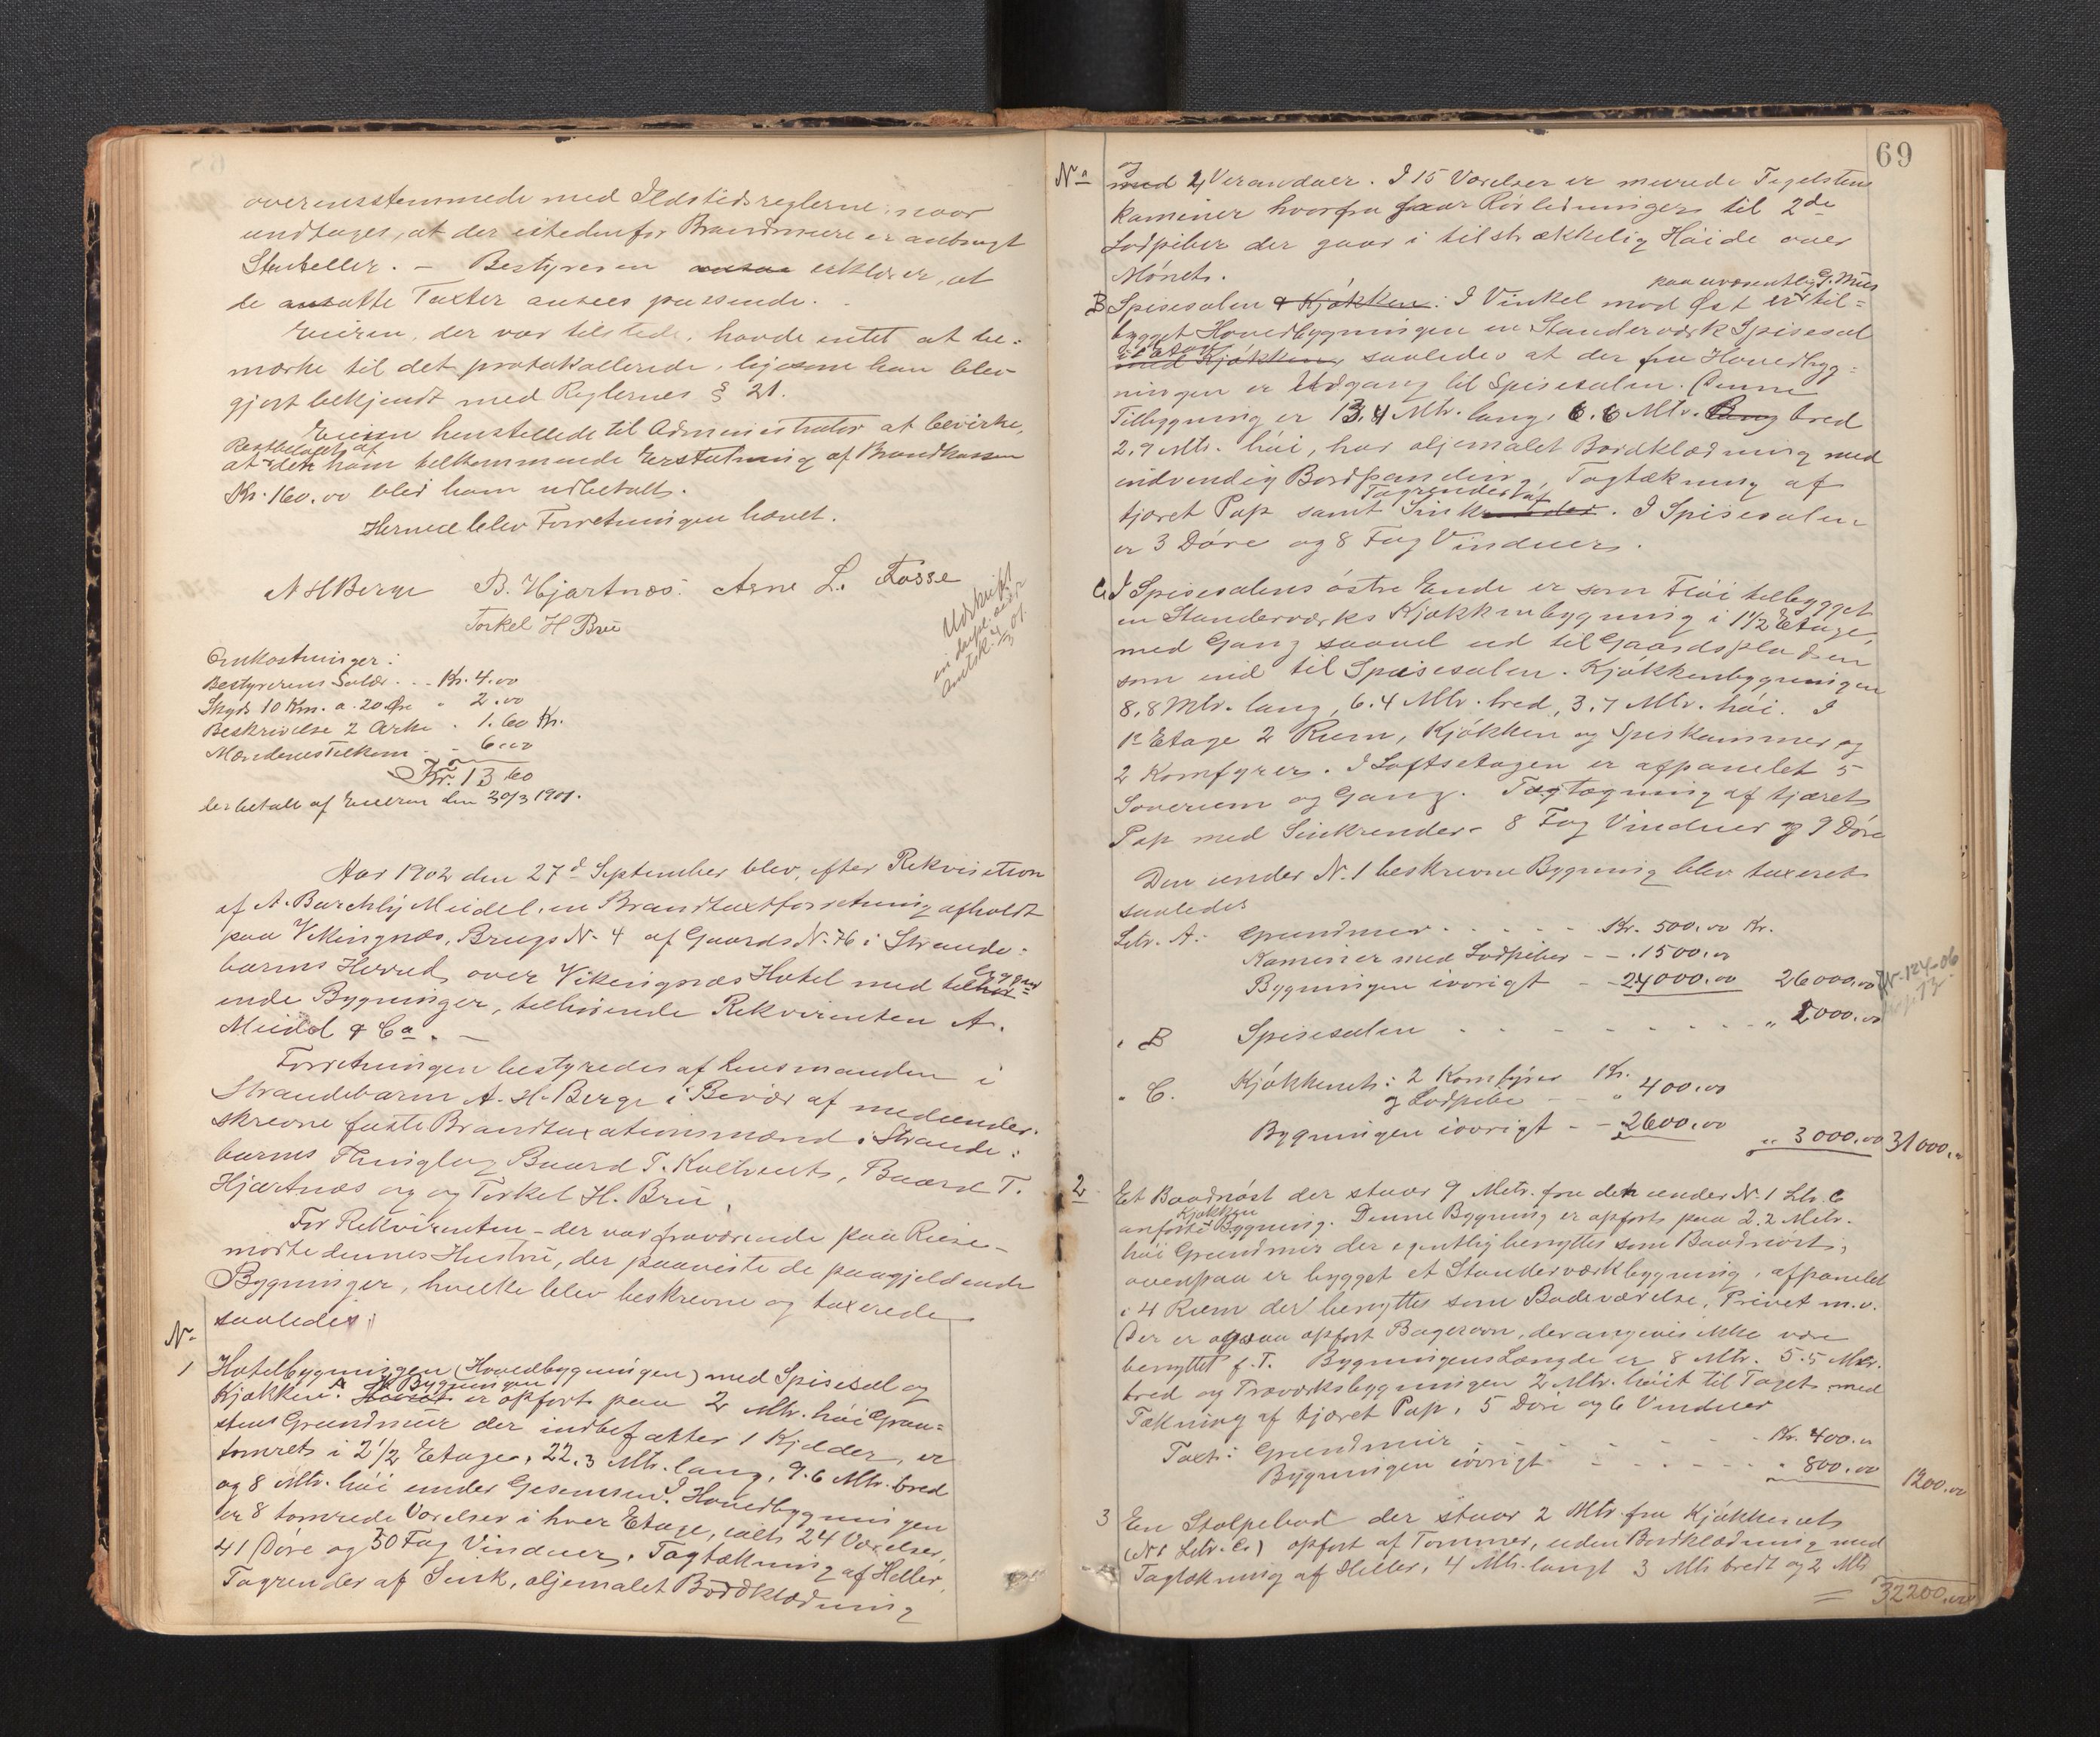 overensstemmede med Ildstedsreglerne, naar
undtages, at der istedenfor Brandmure er anbragt
Stenheller. – Bestyreren erklærer, at
de ansatte Taxter ansees passende. –
Eieren, der var tilstede, havde intet at be=
mærke til det protokollerede, ligesom han blev
gjort bekjendt med Reglernes § 21.
Eieren henstillede til Administrator at bevirke,
Restbeløbet af
at den ham tilkommende Erstatning af Brandkassen
Kr. 160.00 blev ham udbetalt.
Hermed blev Forretningen hævet.
A H Berge B. Hjartnæs. Arne L. Fosse
Torkel H Bru
Udskrift
Omkostninger:
Bestyrerens Salær . . . Kr. 4.00
Skyds 10 Km. a. 20 Øre " 2.00
Beskrivelse 2 Arke . 1.60 Kr.
Mændenes Tilkom. - - 6.00
Kr. 13.60
er betalt af Eieren den 30/3 1901.
Aar 1902 den 27d September blev, efter Rekvisition
af A. Barchly Meidel, en Brandtaxtforretning afholdt
paa Vikingnæs, Brugs N. 4 af Gaards N. 76 i Strande=
barms Herred, over Vikingnæs Hotel med tilhør
ende Bygninger, tilhørende Rekvirenten A.
Meidel & Co. –
Forretningen bestyredes af Lensmanden i
Strandebarm A. H. Berge i Bevær af medunder=
skrevne faste Brandtaxationsmænd i Strande=
barms Thinglag Baard T. Kaltveit, Baard T.
Hjartnæs og og Torkel H. Bru.
For Rekvirenten – der var fraværende paa Reise –
mødte dennes Hustru, der paaviste de paagjeldende
Bygninger, hvilke blev beskrevne og taxerede
saaledes:
No
1 Hotelbygningen (Hovedbygningen) med Spisesal og
Bygningen
Kjøkken. A. er opført paa 2 Mtr. høi Graa=
stens Grundmur der indbefatter 1 Kjelder, er
tømret i 2 1/2 Etage, 22.3 Mtr. lang, 9.6 Mtr. bred
og 8 Mtr. høi under Gesemsen. I Hovedbygningen
er 8 tømrede Værelser i hver Etage, ialt 24 Værelser,
41 Døre og 50 Fag Vinduer. Tagtækning af Heller,
Tagrender af Sink, oljemalet Bordklædning
69
No og
med 4 Verandaer. I 15 Værelser er murede Tegelstens
Kaminer hvorfra gaar Rørledninger til 2de
Lodpiber der gaar i tilstrækkelig Høide over
Mønet.
paa uvæsentlig G. Mur
B Spisesalen & Kjøkken: I Vinkel mod Øst er til=
bygget Hovedbygningen en Standerværk Spisesal
i 1 Etage
med Kjøkken, saaledes at der fra Hovedbyg=
ningen er Udgang til Spisesalen. Denne
Tilbygning er 13.4 Mtr. lang, 6.6 Mtr. bred
2.9 Mtr. høi, har oljemalet Bordklædning med
indvendig Bordpaneling, Tagtækning af
Tagrender af
tjæret Pap samt Sinkrender. I Spisesalen
er 3 Døre og 8 Fag Vinduer.
C. I Spisesalens østre Ende er som Fløi tilbygget
en Standerværks Kjøkkenbygning i 1 1/2 Etage,
med Gang saavel ud til Gaardspladsen
som ind til Spisesalen. Kjøkkenbygningen
8,8 Mtr. lang, 6.4 Mtr. bred, 3.7 Mtr. høi. I
1e Etage 2 Rum, Kjøkken og Spiskammer og
2 Komfyrer. I Loftsetagen er afpanelet 5
Soverum og Gang. Tagtægning af tjæret
Pap med Sinkrender. 8 Fag Vinduer og 9 Døre
Den under N. 1 beskrevne Bygning blev taxeret
saaledes
Litr. A: Grundmur . . . . . Kr. 500.00 Kr.
Kaminer med Lodpiber – – . 1500.00
Bygningen iøvrigt – – 24000.00 26000.00
" B Spisesalen . . . . . . . . " 2000.00
" C. Kjøkkenet: 2 Komfyrer Kr.
og Lodpibe – – " 400.00
Bygningen iøvrigt – – 2600.00
" 3000.00 31000.
2 Et Baadnøst der staar 9 Metr. fra den under N. 1 Ltr. C
Kjøkken
anførte Bygning. Denne Bygning er opført paa 2.2 Metr.
høi Grundmur der egentlig benyttes som Baadnøst,
ovenpaa er bygget et Standerværkbygning, afpanelet
i 4 Rum der benyttes som Badeværelse, Privet m.v.
Der er ogsaa opført Bagerovn, der angives ikke være
benyttet f. T. Bygningens Længde er 8 Mtr. 5.5 Mtr.
bred og Træværksbygningen 2 Mtr. høit til Taget med
Tækning af tjæret Pap, 5 Døre og 6 Vinduer
Taxt: Grundmur – – – – – Kr. 400.00
Bygningen iøvrigt – – – – – " 800.00 1200.00
3 En Stolpebod der staar 2 Mtr. fra Kjøkkenet
(N 1 Litr. C.) opført af Tømmer, uden Bordklædning med
Tagtækning af Heller, 4 Mtr. langt 3 Mtr bredt og 2 Mtr
32200.00